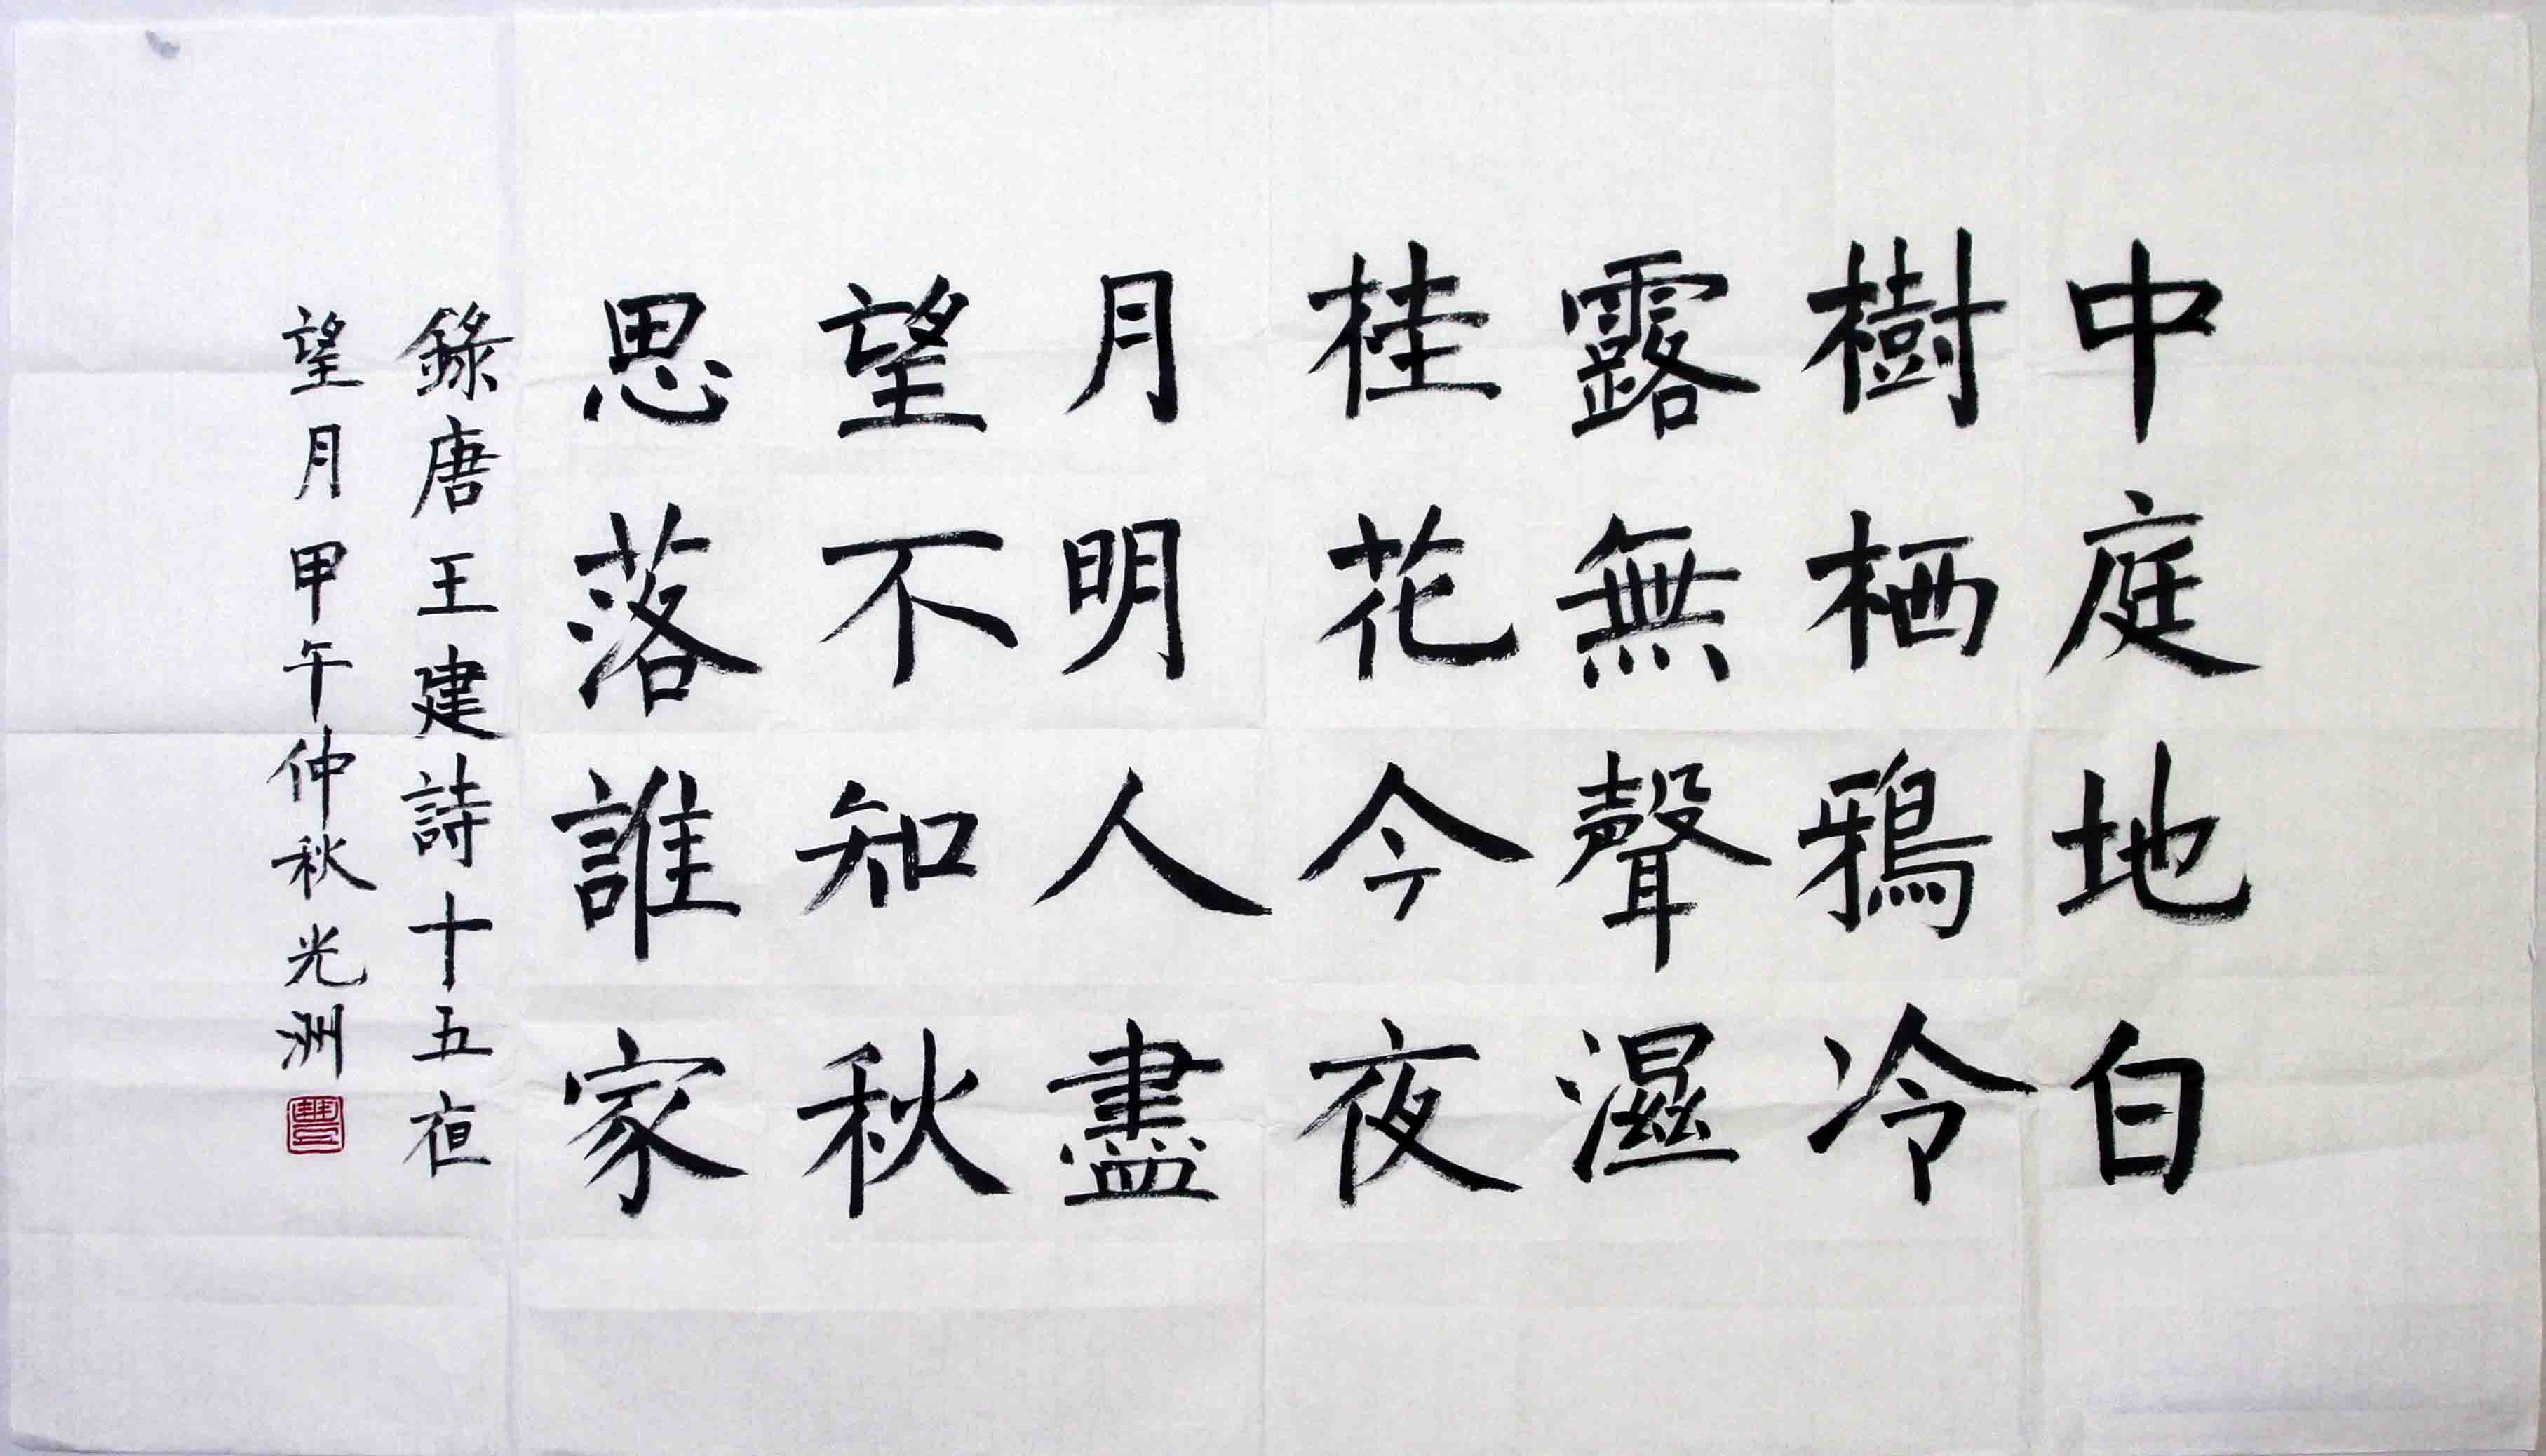 中庭地白
樹栖鴉冷
露無聲濕
桂花今夜
月明人盡
望不知秋
思落誰家
錄唐王建詩十五亱
望月甲午仲秋光洲